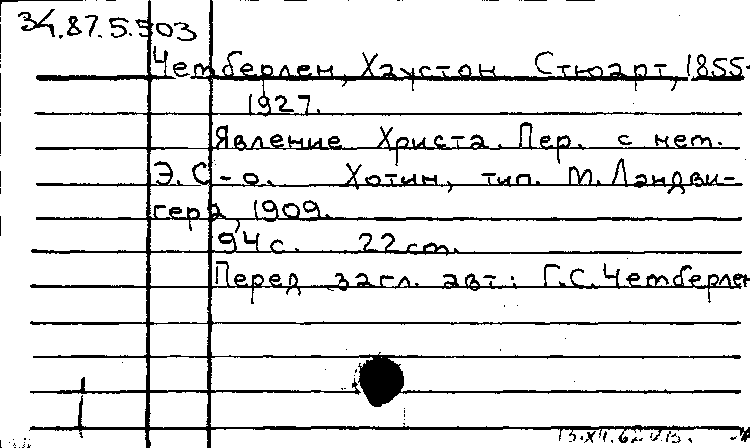 34.87.5.503
Чемберлен, Хаустон Стюарт, 1855-
1927.
Явление Христа. Пер. с нем.
Э. С-о. Хотин, тип. М. Ландви-
гера, 1909.
94 с. 22 cm.
Перед загл. авт.: Г.С. Чемберлен